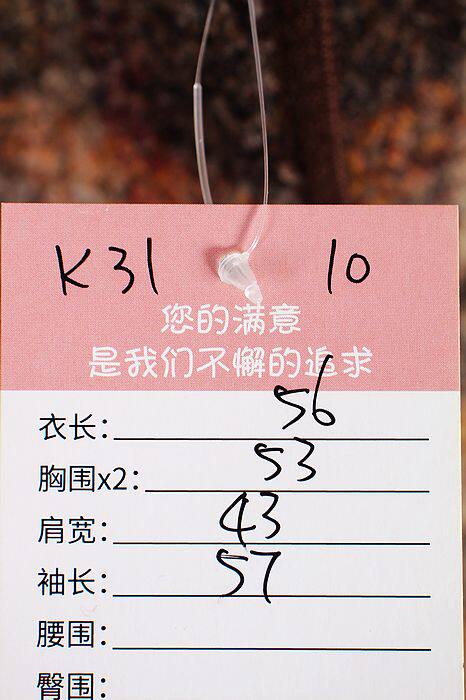 K31 10
您的满意
是我们不懈的追求
衣长: 56
胸围x2: 53
肩宽: 43
袖长: 57
腰围:
臀围: